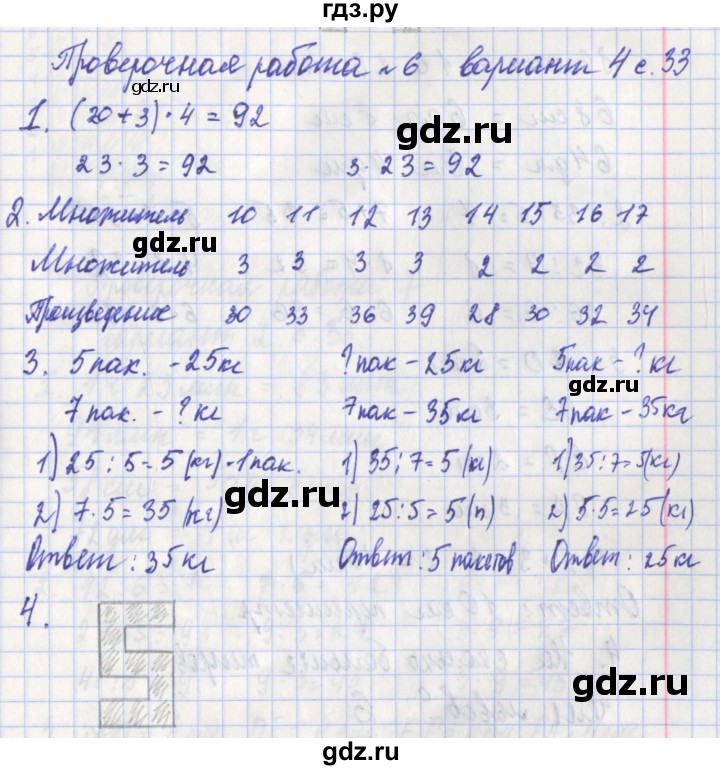 гдз.ру
Проверочная работа № 6 вариант 4 с. 33
gdz.ru
1. (20 + 3) · 4 = 92
gdz.ru
23 · 3 = 92 3 · 23 = 92
2. Множитель 10 11 12 13 14 15 16 17
gdz.ru
Множитель 3 3 3 3 2 2 2 2
Произведение 30 33 36 39 28 30 32 34
3. 5 пак. - 25 кг ? пак - 25 кг 5 пак - ? кг
gdz.ru gdz.ru
7 пак. - ? кг 7 пак - 35 кг 7 пак - 35 кг
1) 25 : 5 = 5 (кг) - 1 пак. 1) 35 : 7 = 5 (кг) 1) 35 : 7 = 5 (кг)
gdz.ru
2) 7 · 5 = 35 (кг) 2) 25 : 5 = 5 (п) 2) 5 · 5 = 25 (кг)
Ответ : 35 кг Ответ : 5 пакетов Ответ : 25 кг
gdz.ru
4.
gdz.ru
gdz.ru
gdz.ru